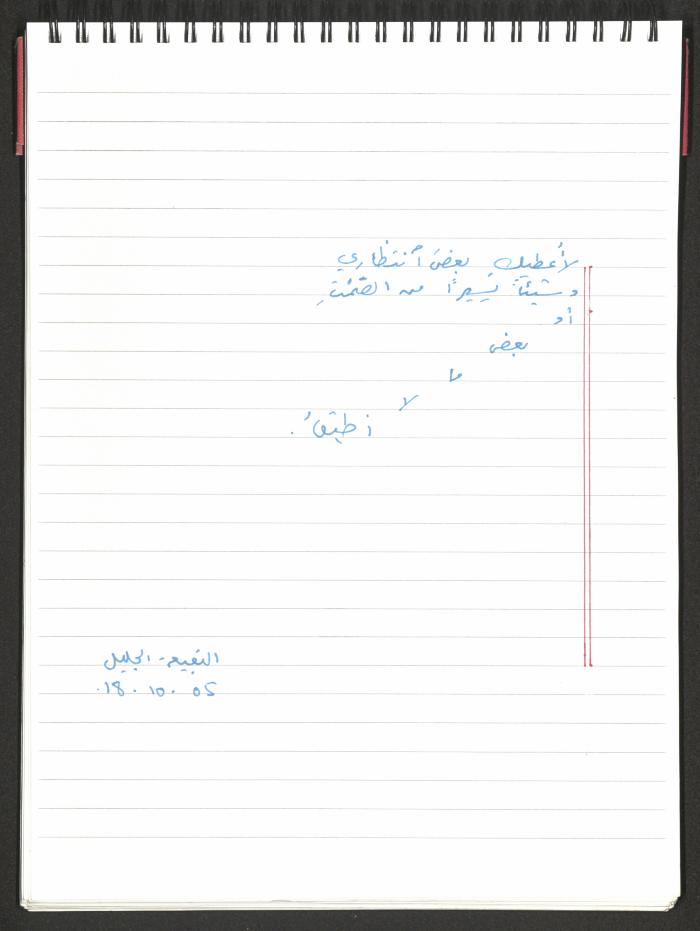 لأُعطيك بعضَ انتظاري
و شيئاً يَسيراً من الصَّمْتِ
أو
بعض
ما
لا
أطيقُ.
البقيعة - الجليل
18.10.05